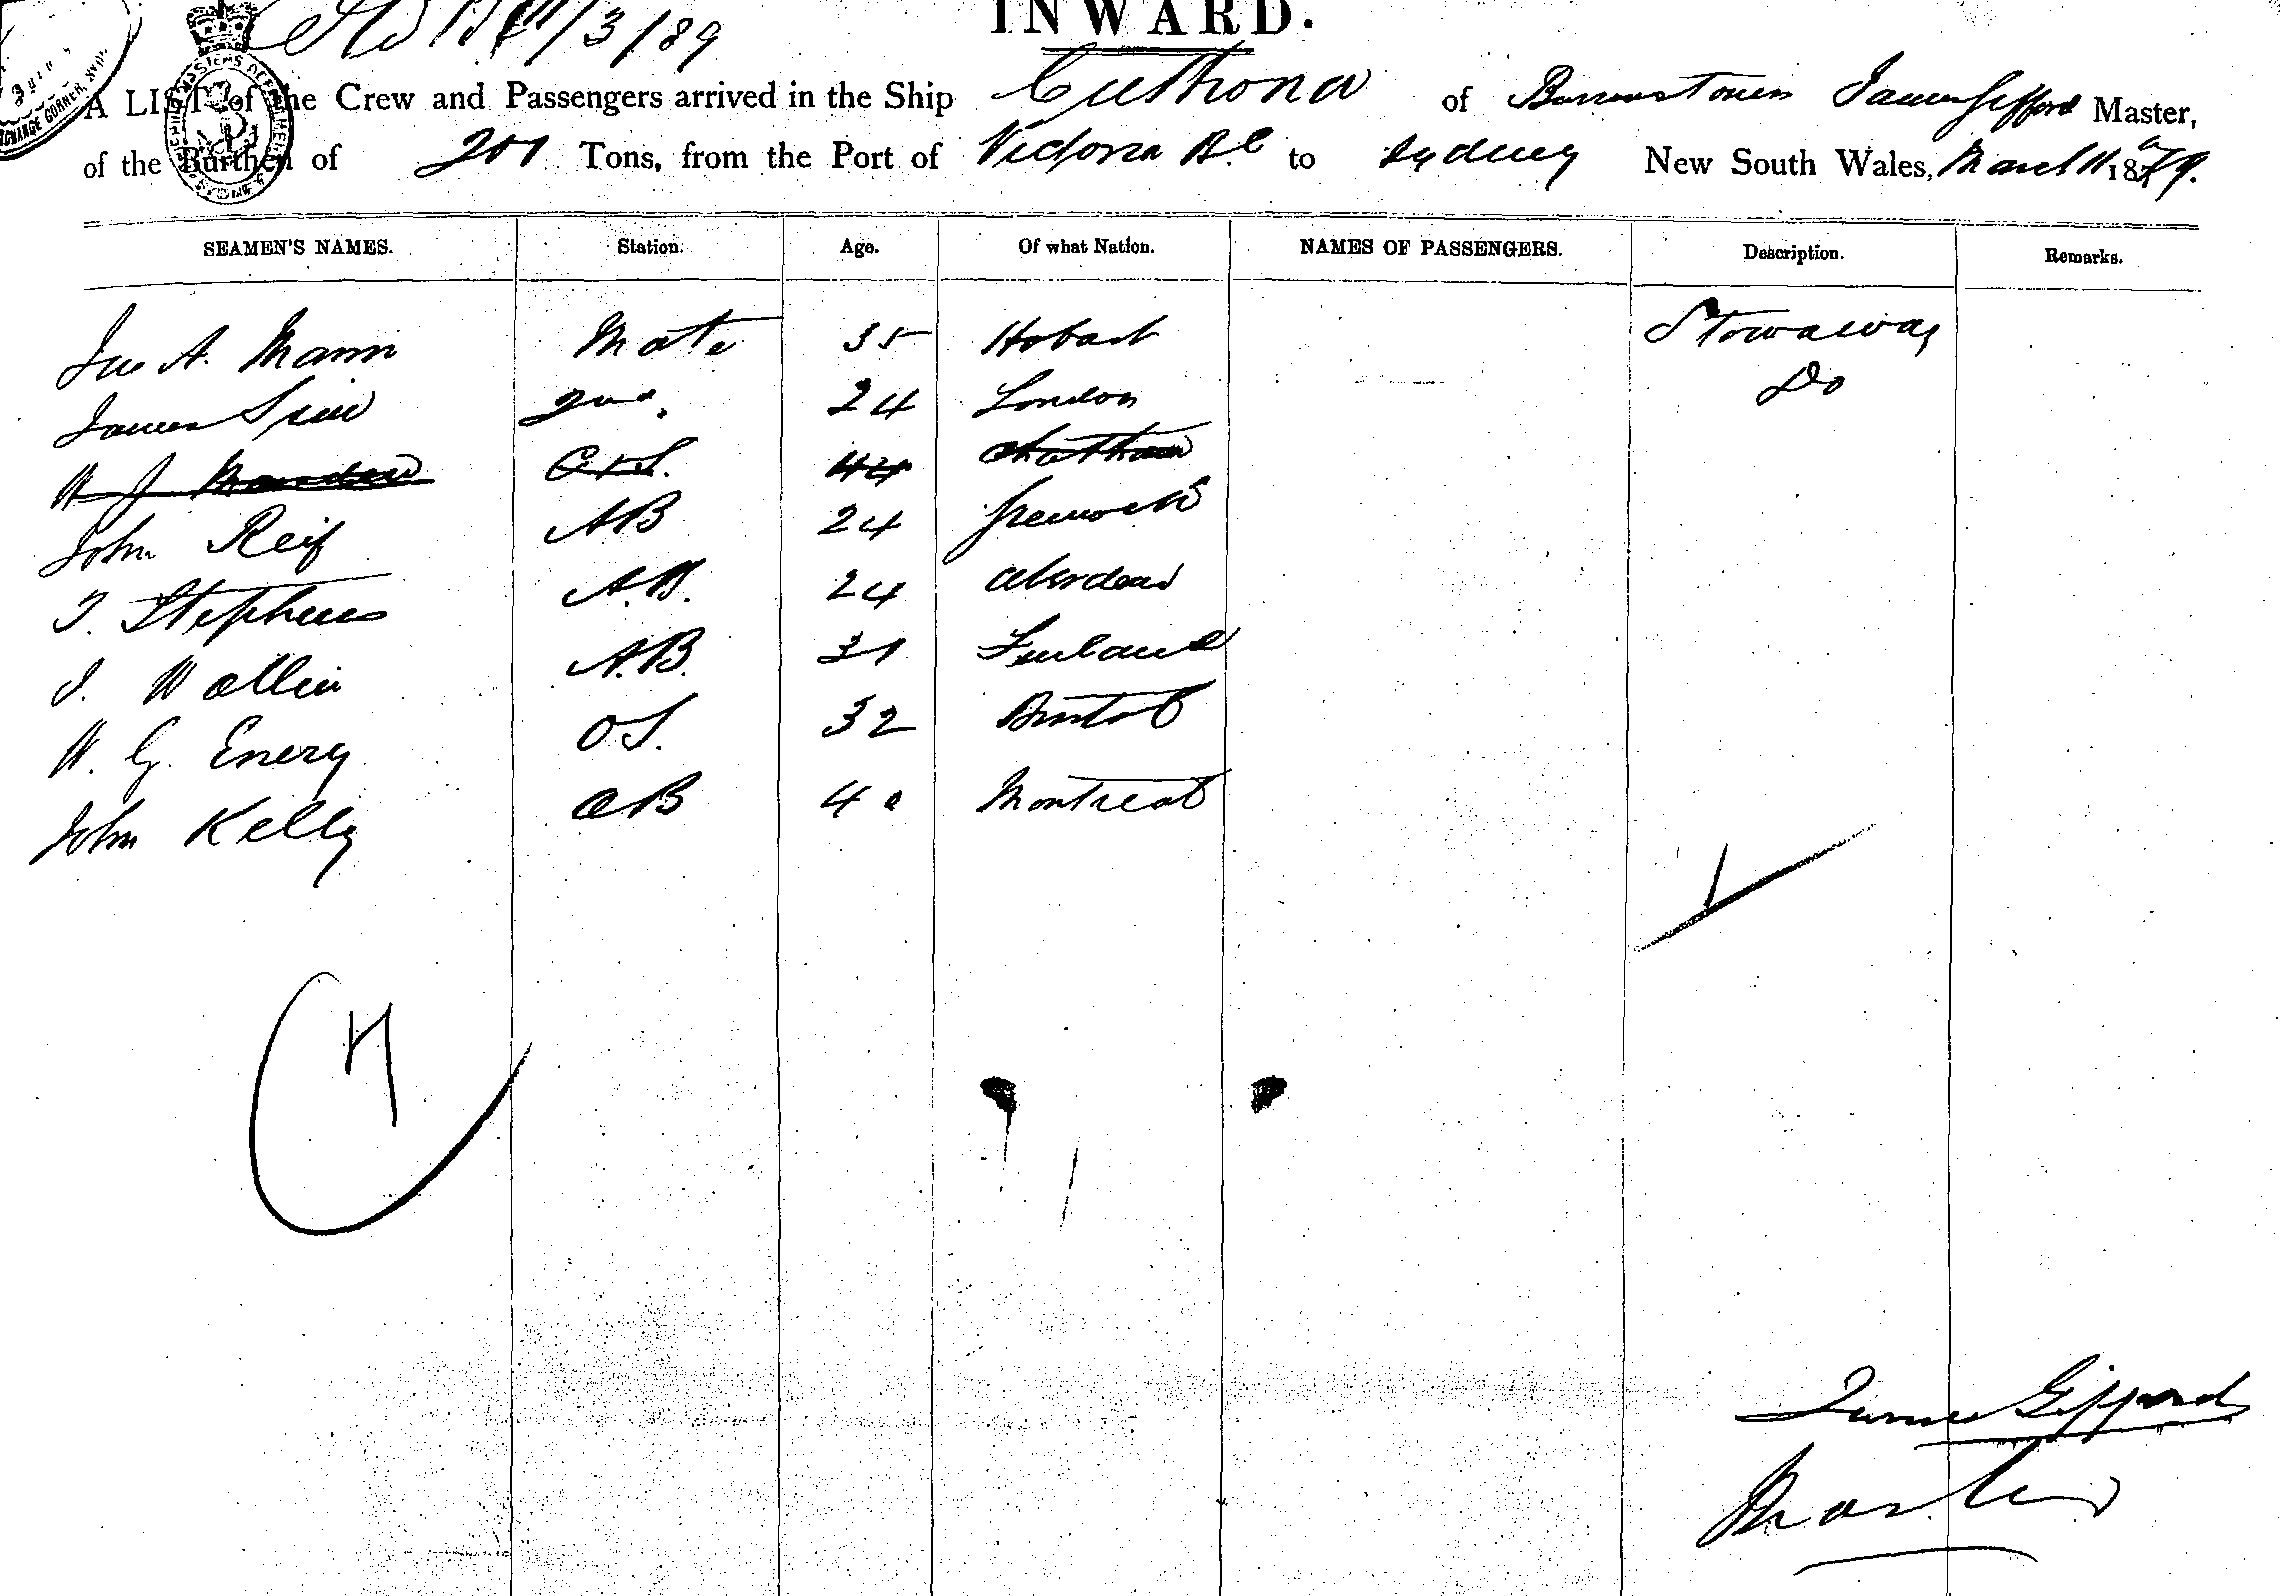 11/3/89
INWARD.
A LIST of the Crew and Passengers arrived in the Ship Cuthona of James Gifford Master,
of the Burthen of 201 Tons, from the Port of Victoria B.C to Sydney New South Wales, March 11 1889.
SEAMEN'S NAMES. Station. Age. Of what Nation. NAMES OF PASSENGERS. Description. Remarks.
Jno A. Mann Mate 35 Hobart Stowaway
James 2nd. 24 London Do
W J C & S. 44 Chatham
John Reid AB 24 Greenock
T. Stephens A.B. 24 Aberdeen
J. Wallin A.B. 31 Finland
W. G. Enery O S. 32 Bristol
John Kelly AB 40 Montreal
7
James Gifford
Master